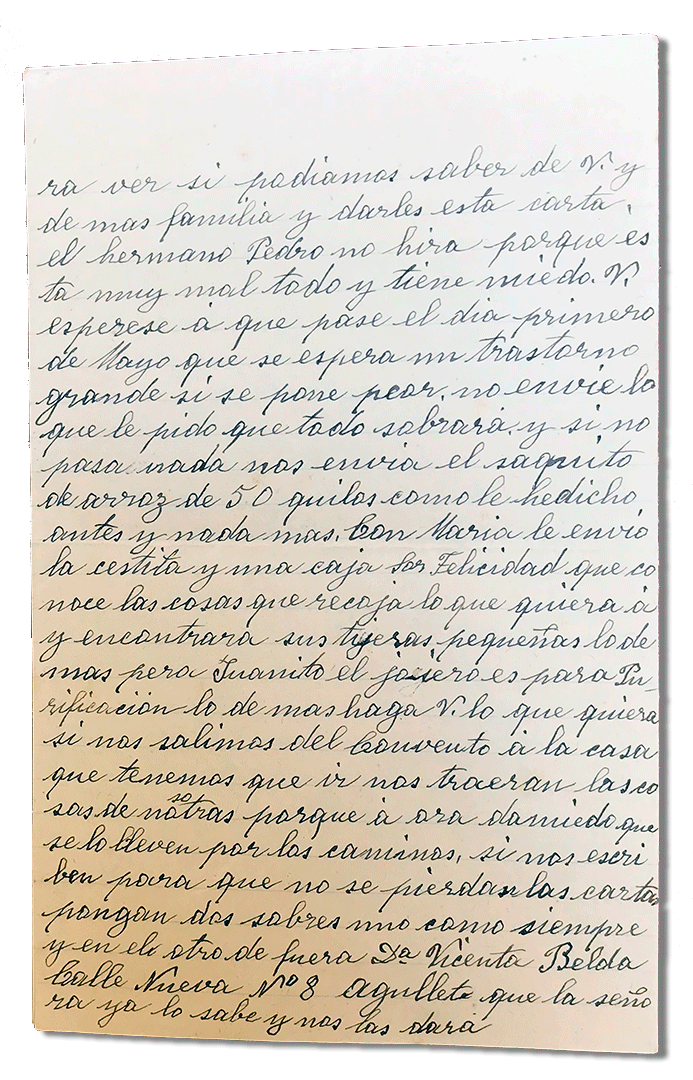 ra ver si podiamos saber de V. y
de mas familia y darles esta carta,
el hermano Pedro no hira porque es
ta muy mal todo y tiene miedo. V.
esperese à que pase el dia primero
de Mayo que se espera un trastorno
grande si se pone peor. no envie lo
que le pido que todo sobrará. y si no
pasa nada nos envia el saquito
de arroz de 50 quilos como le hedicho
antes y nada mas. Con Maria le envio
la cestita y una caja Sor Felicidad que co
noce las cosas que recoja lo que quiera à
y encontrara sus tijeras pequeñas lo de
mas pera Juanito el joyero es para Pu_
rificación lo de mas haga V. lo que quiera
si nos salimos del Convento à la casa
que tenemos que ir nos traeran las co
sas de nosotras porque à ora da miedo que
se lo lleven por los caminos, si nos escri
ben para que no se pierdan las cartas
pongan dos sobres uno como siempre
y en el otro de fuera Dª Vicenta Belda
Calle Nueva Nº 8 Agullete que la seño
ra ya lo sabe y nos las dará